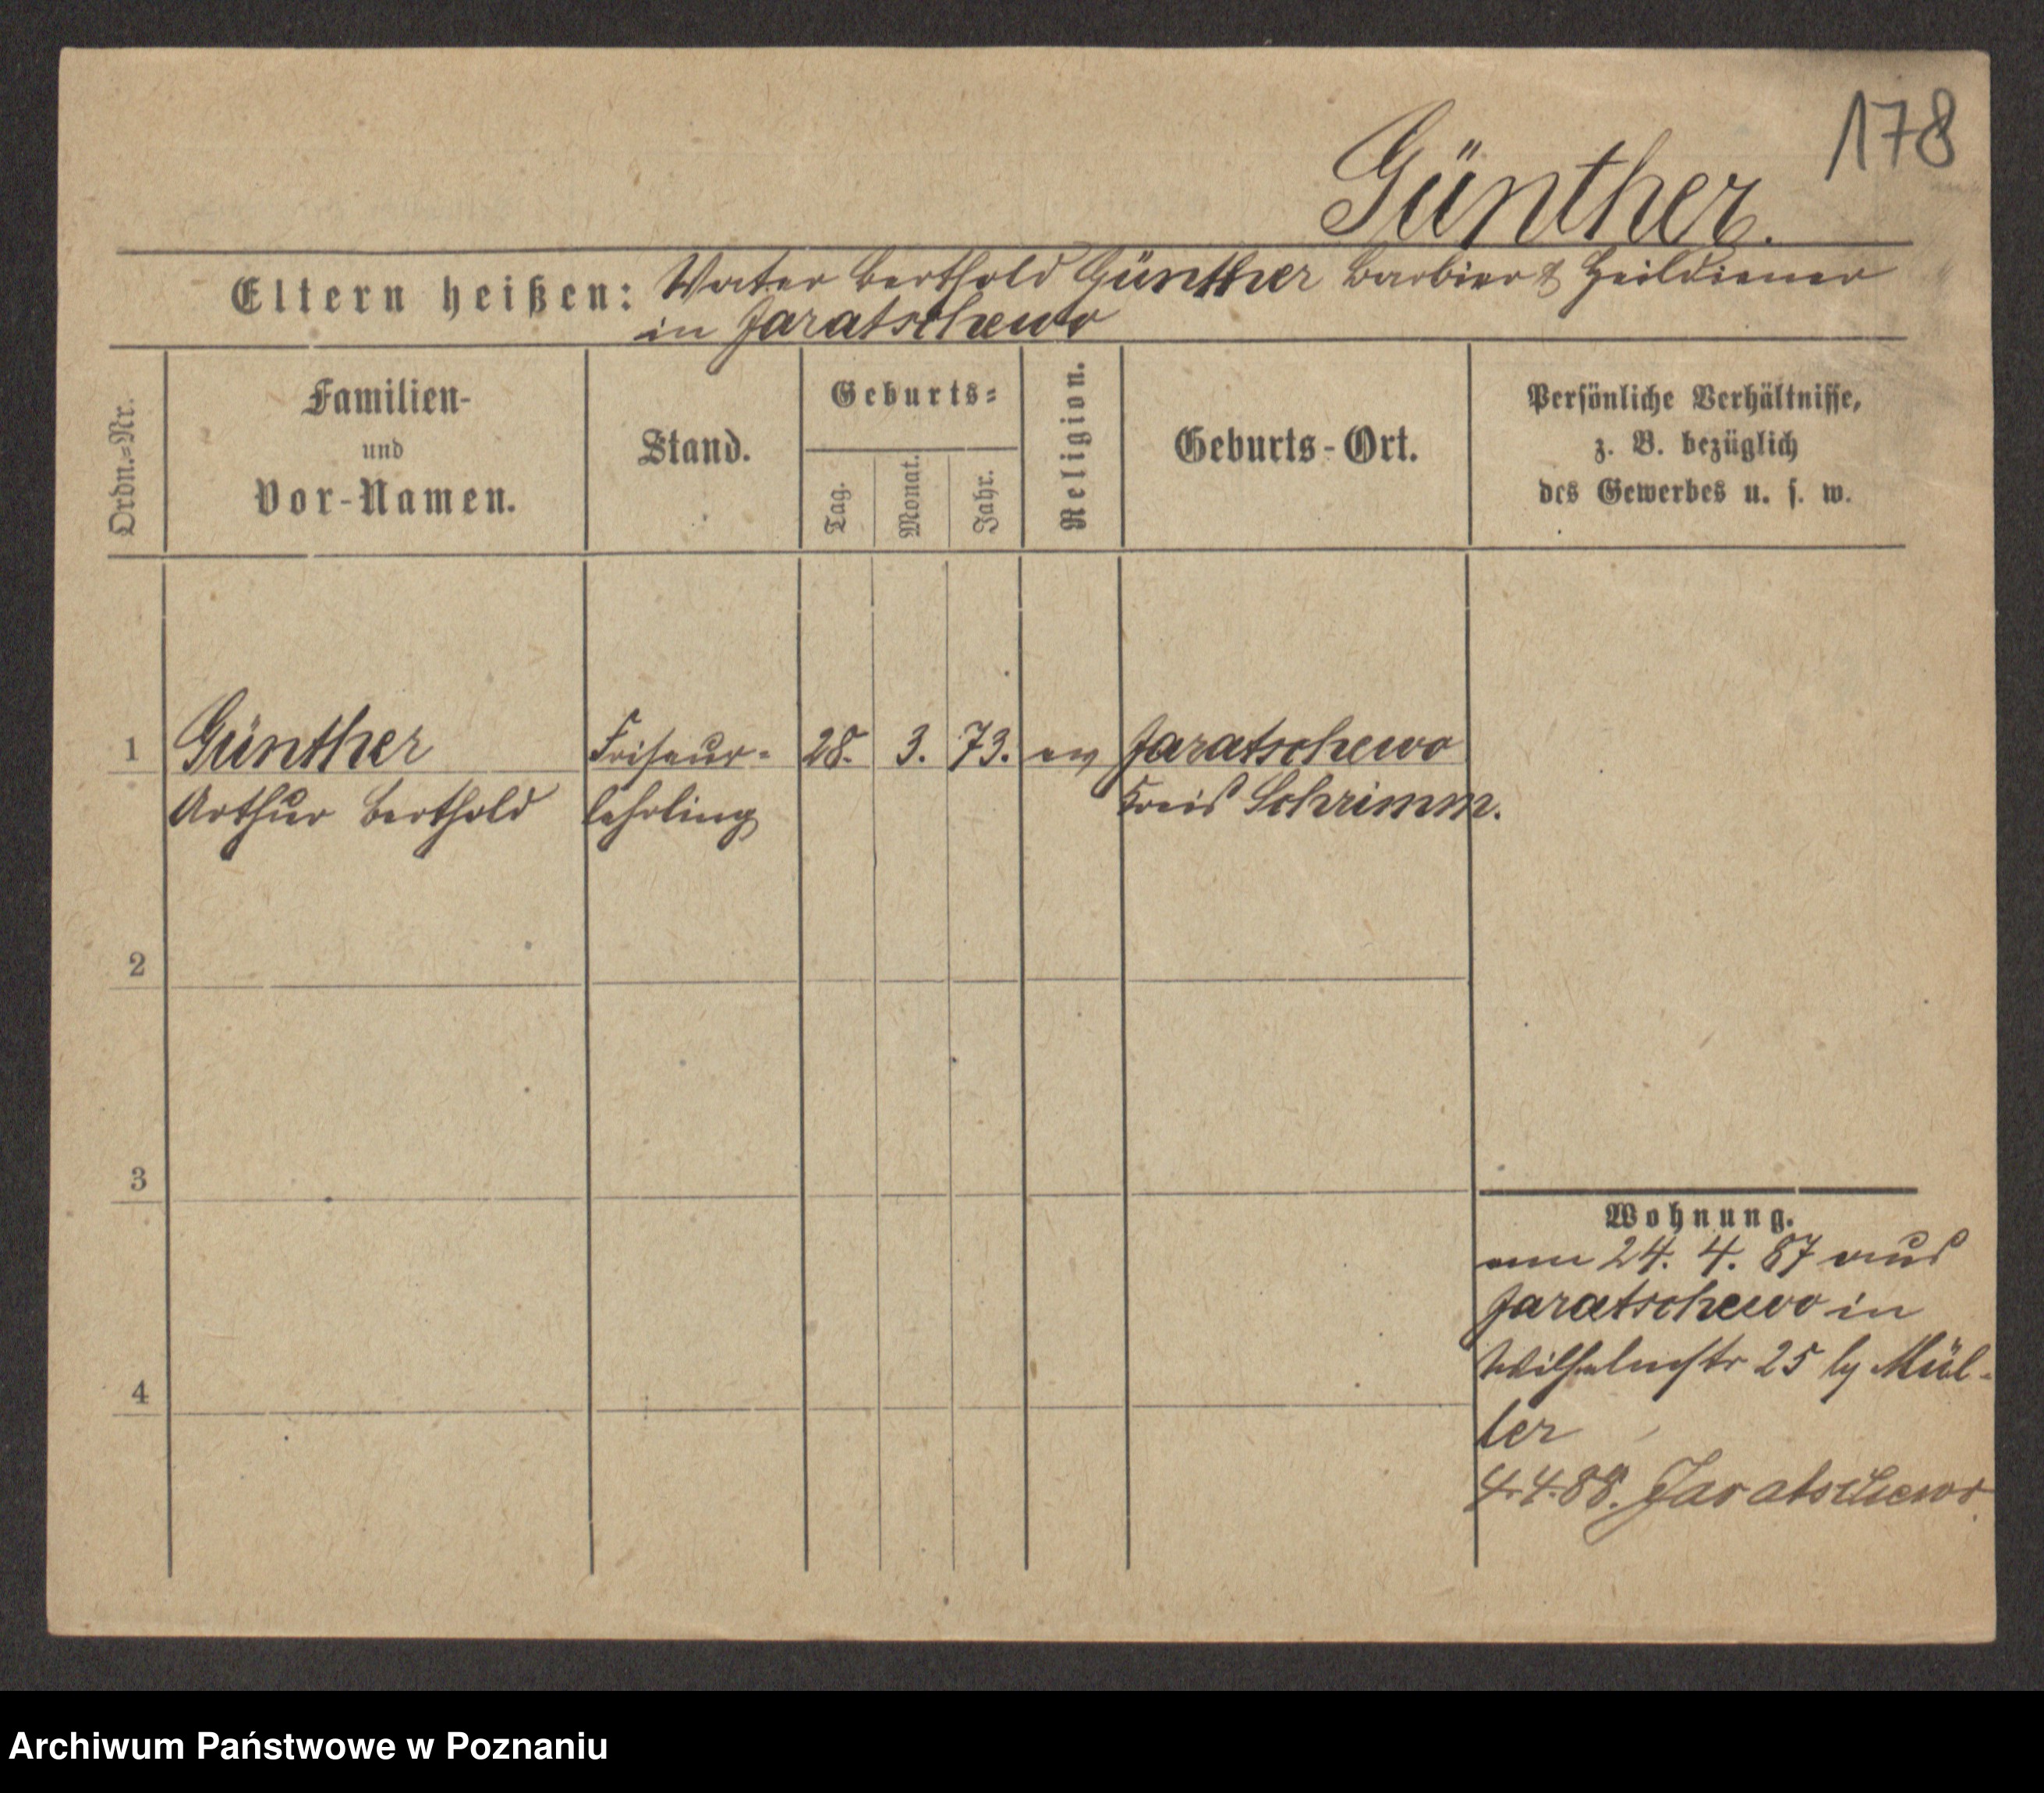 178
Günther.
Eltern heißen: Vater Berthold Günther Barbier & Heildiener
in Jaratschewo
Ordn.-Nr.
Familien-
und
Vor-Namen.
Stand.
Geburts-
Tag.
Monat.
Jahr.
Religion.
Geburts-Ort.
Persönliche Verhältnisse,
z. B. bezüglich
des Gewerbes u. s. w.
1 Günther Friseur- 28. 3. 73. ev Jaratschewo
Arthur Berthold lehrling Kreis Schrimm.
2
3
4
Wohnung.
am 24. 4. 87 aus
Jaratschewo in
Wilhelmstr 25 by Mül-
ler
4.4.88. Jaratschewo.
Archiwum Państwowe w Poznaniu